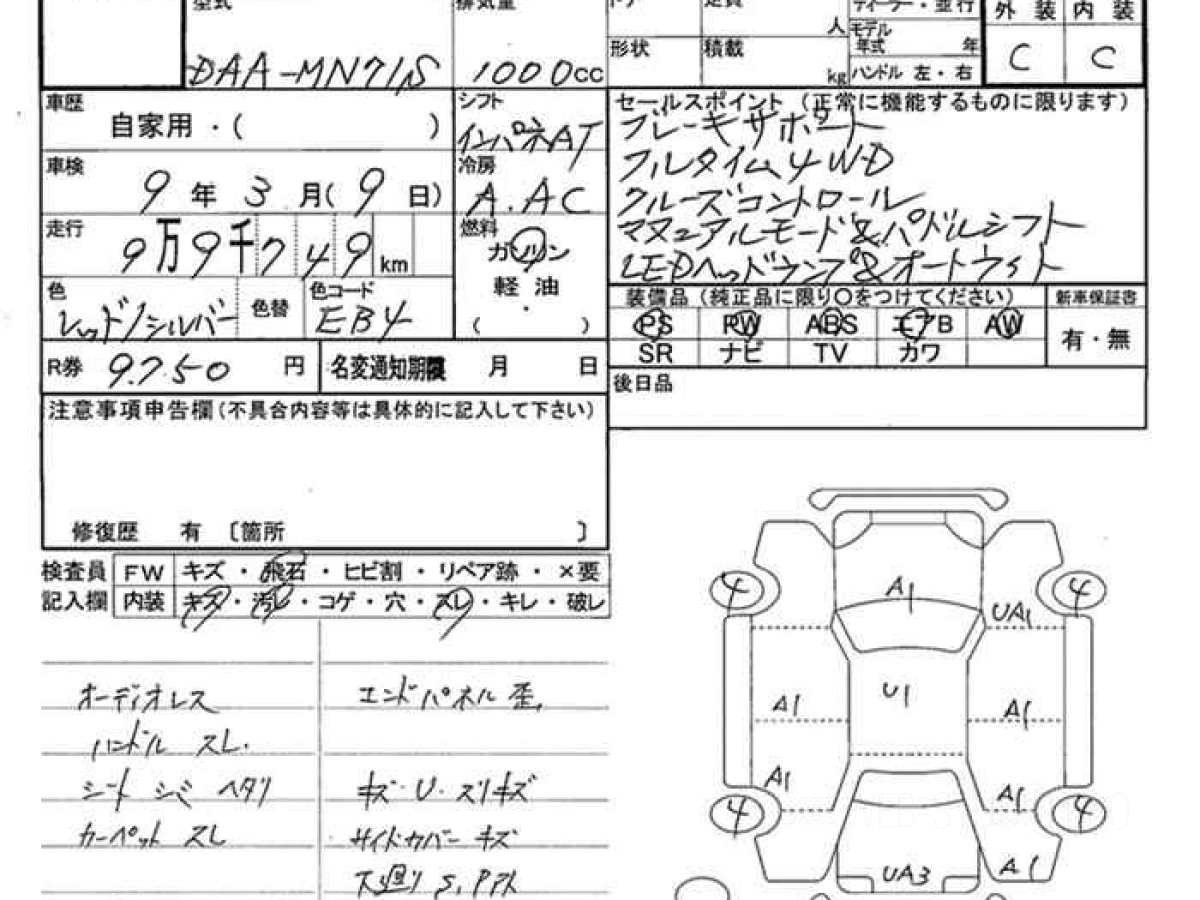 型式 排気量 ドア 定員 人 ディーラー・並行 外装 内装
DAA-MN71S 1000cc 形状 積載 kg モデル年式 年 C C
ハンドル 左・右
車歴 自家用・( ) シフト インパネAT
セールスポイント (正常に機能するものに限ります)
ブレーキサポート
フルタイム4WD
クルーズコントロール
マニュアルモード&パドルシフト
LEDヘッドランプ&オートライト
車検 9年3月(9日) 冷房 A.AC
走行 9万9千749km 燃料 ガソリン
軽油
・
( )
色 レッド/シルバー 色替 色コード EB4
装備品 (純正品に限り〇をつけてください) 新車保証書
PS PW ABS エアB AW 有・無
SR ナビ TV カワ
R券 9.750円 名変通知期限 月 日
後日品
注意事項申告欄(不具合内容等は具体的に記入して下さい)
修復歴 有 〔箇所 〕
検査員 FW キズ・飛石・ヒビ割・リペア跡・×要
記入欄 内装 キズ・汚レ・コゲ・穴・スレ・キレ・破レ
オーディオレス
ハンドル スレ.
シート シミ ヘタリ
カーペット スレ
エンドパネル 歪,
キズ・U・スリキズ
サイドカバー キズ
下廻り S,Pアト
4 A1 4
UA1
U1
A1 A1
A1 A1
4 4
UA3 A1